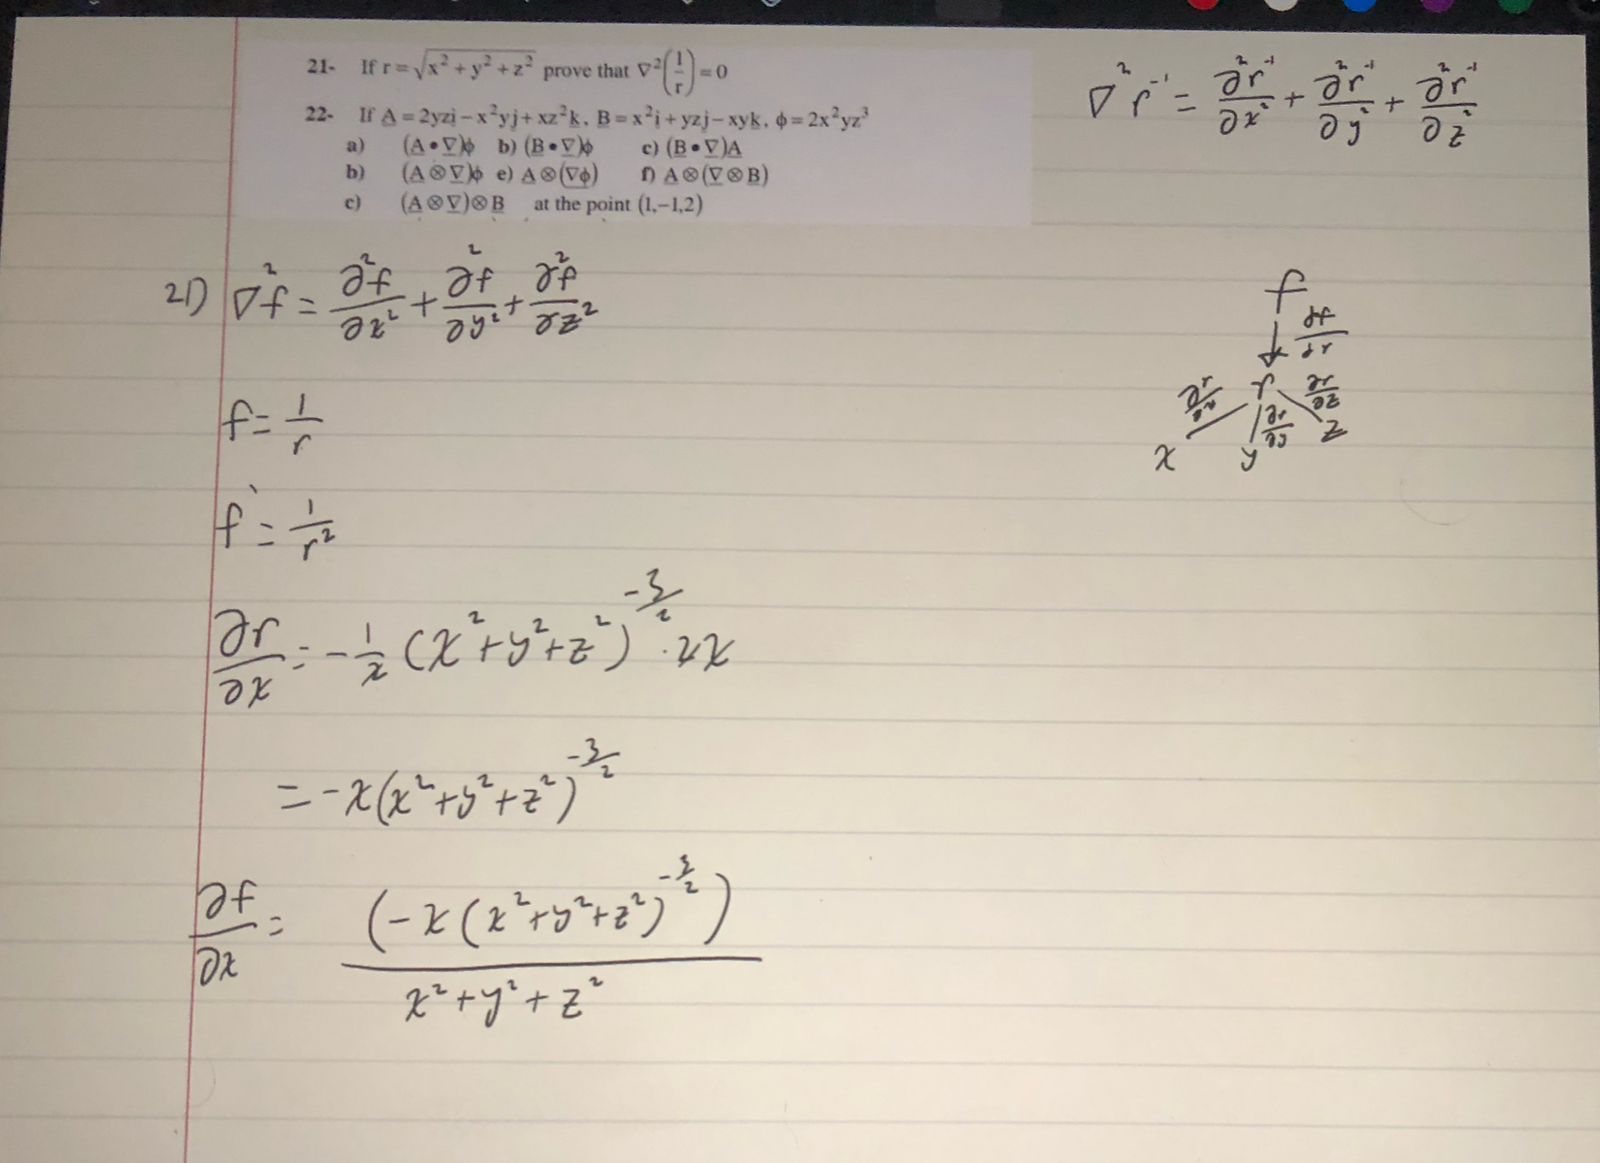 21- If r = √(x² + y² + z²) prove that ∇²(1/r) = 0
22- If A = 2yzi − x²yj + xz²k, B = x²i + yzj − xyk, ϕ = 2x²yz³
a) (A•∇)ϕ b) (B•∇)ϕ c) (B•∇)A
b) (A⊗∇)ϕ e) A⊗(∇ϕ) f) A⊗(∇⊗B)
c) (A⊗∇)⊗B at the point (1,−1,2)
∇²r⁻¹ = ∂²r⁻¹/∂x² + ∂²r⁻¹/∂y² + ∂²r⁻¹/∂z²
21) ∇²f = ∂²f/∂x² + ∂²f/∂y² + ∂²f/∂z²
f
df/dr
∂r/∂x r ∂r/∂z
∂r/∂y
x y z
f = 1/r
f` = 1/r²
∂r/∂x = -1/2 (x² + y² + z²)^(-3/2) · 2x
= -x(x² + y² + z²)^(-3/2)
∂f/∂x = (-x(x² + y² + z²)^(-3/2)) / x² + y² + z²